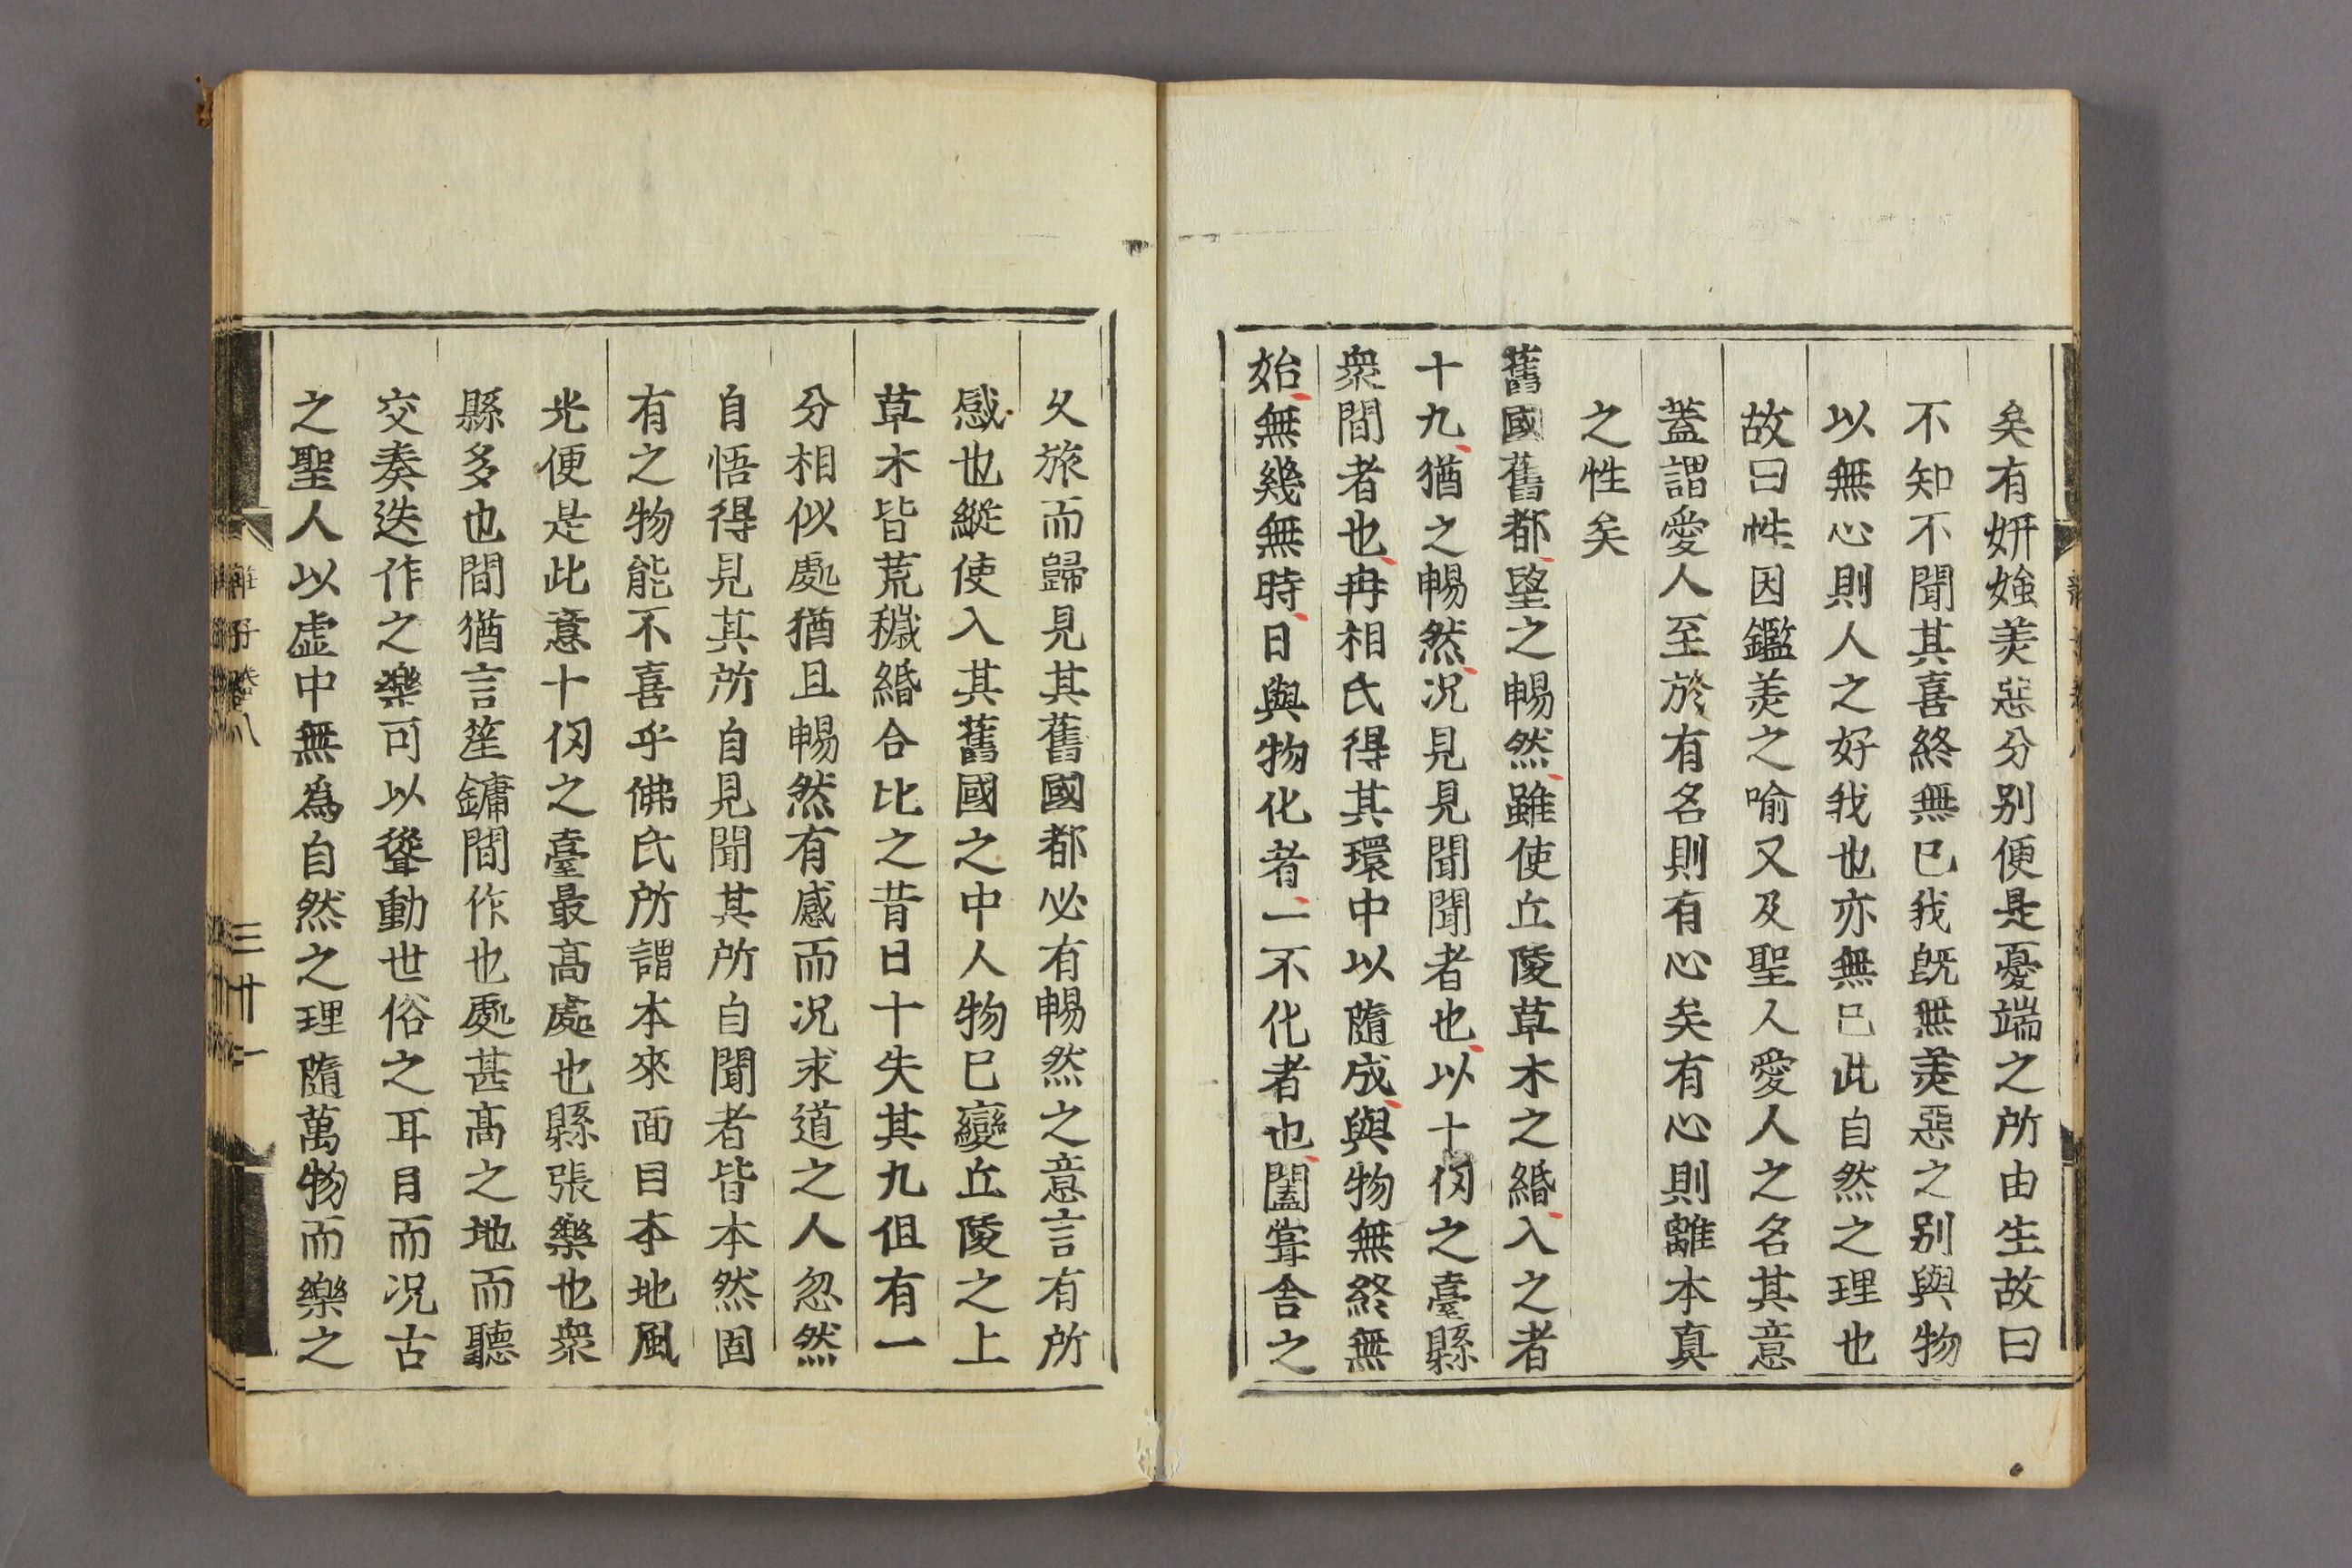 矣有姸媸羙惡分别便是憂端之所由生故曰
不知不聞其喜終無已我旣無羙惡之别與物
以無心則人之好我也亦無已此自然之理也
故曰性因鑑羙之喻又及聖人愛人之名其意
蓋謂愛人至於有名則有心矣有心則離本真
之性矣
舊國舊都望之暢然雖使丘陵草木之緡入之者
十九猶之暢然况見見聞聞者也以十仞之臺縣
衆間者也冉相氏得其環中以隨成與物無終無
始無幾無時日與物化者一不化者也闔嘗舎之
久旅而歸見其舊國都必有暢然之意言有所
感也縱使入其舊國之中人物已變丘陵之上
草木皆荒穢緡合比之昔日十失其九但有一
分相似處猶且暢然有感而况求道之人忽然
自悟得見其所自見聞其所自聞者皆本然固
有之物能不喜乎佛氏所謂本來面目本地風
光便是此意十仞之臺最高處也縣張樂也衆
縣多也間猶言笙鏞間作也處甚高之地而聽
交奏迭作之樂可以聳動世俗之耳目而况古
之聖人以虚中無爲自然之理隨萬物而樂之
莊子卷八
三十一